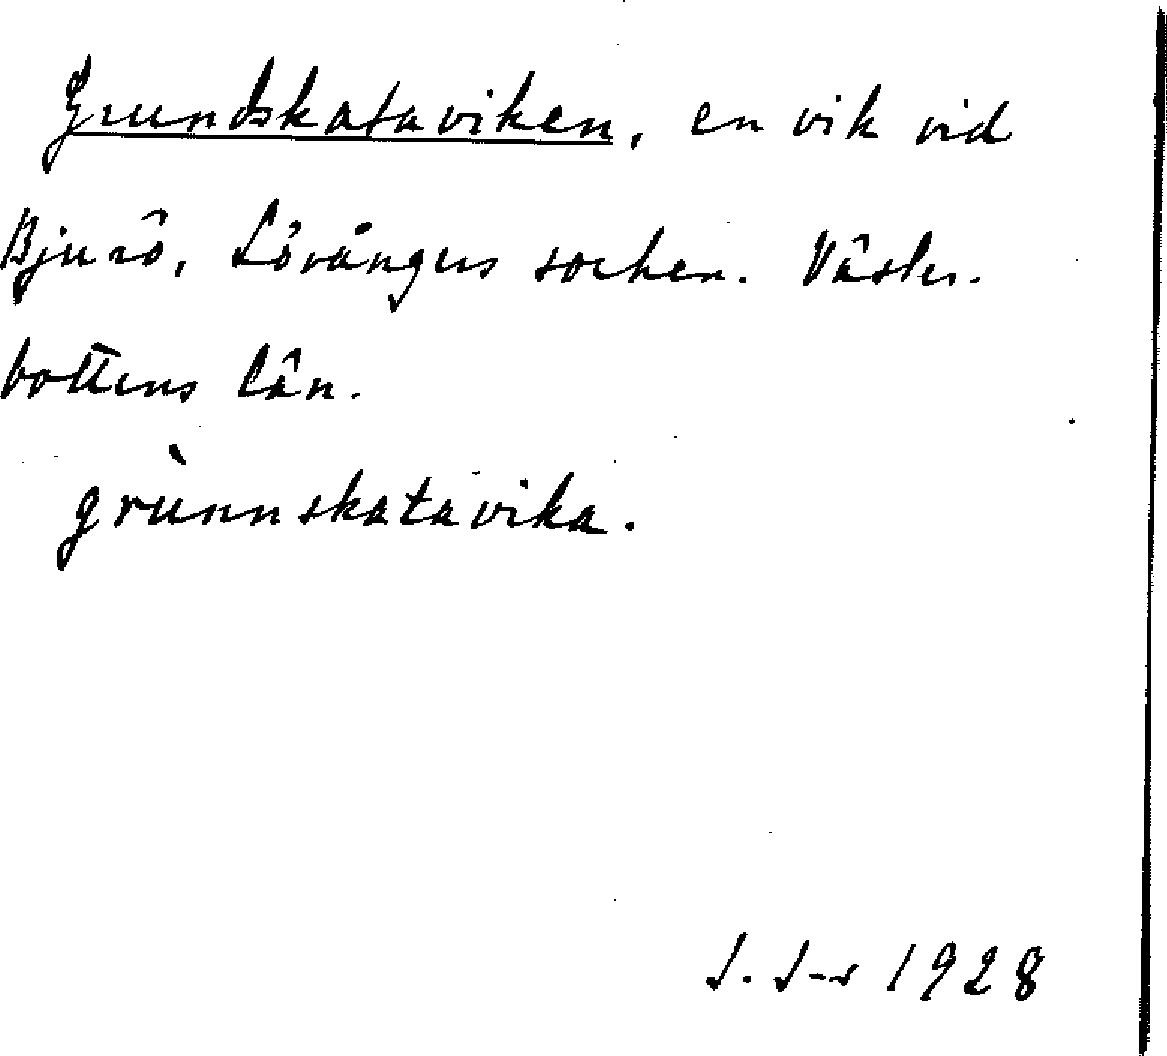 Grundskataviken, en vik vid
Bjurö, Lövångers socken. Väster-
bottens län.
grùnnskatavika.
J. J-r 1928